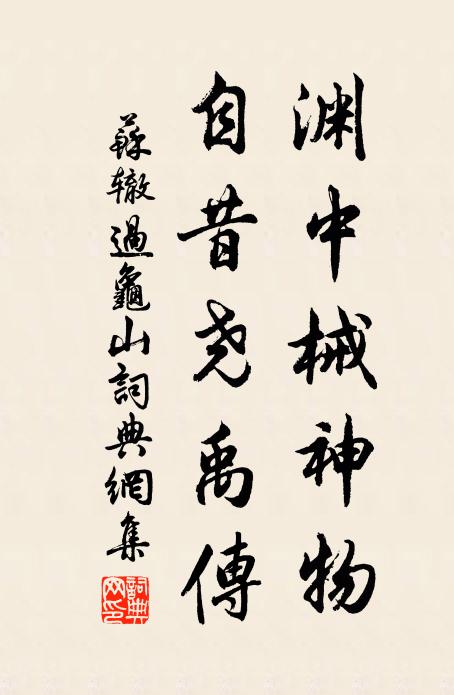 渊中械神物
自昔尧禹傳
蘇辙過龜山詞典網集
詞典
网印